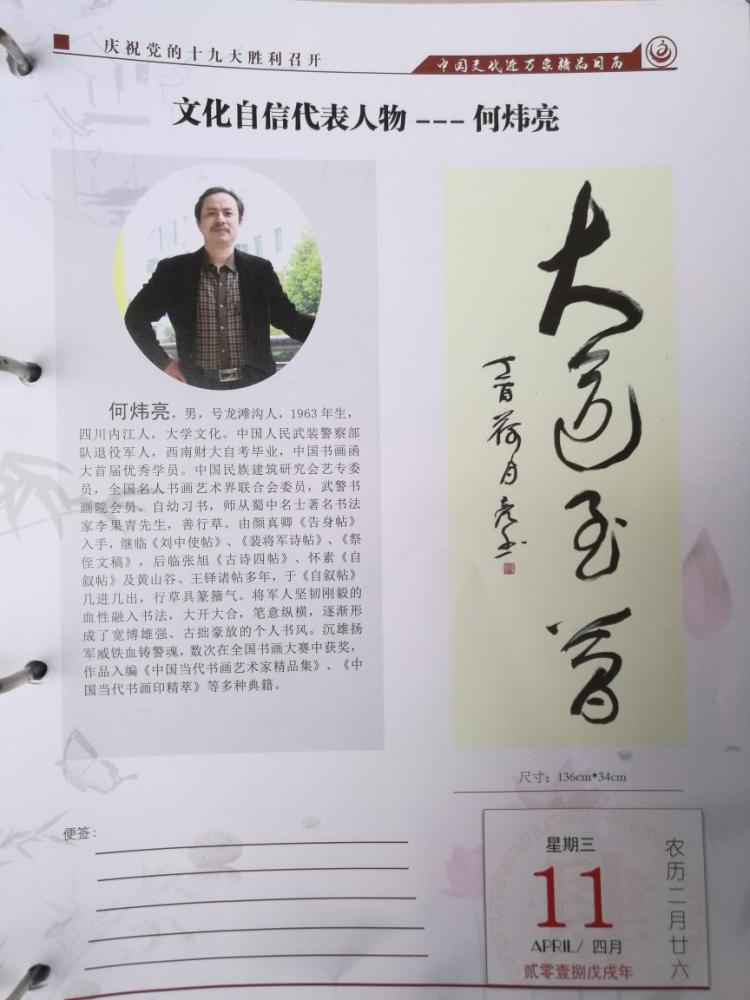 庆祝党的十九大胜利召开
中国代家精品日历
文化自信代表人物 --- 何炜亮
何炜亮，男，号龙滩沟人，1963 年生，
四川内江人，大学文化。中国人民武装警察部
队退役军人，西南财大自考毕业，中国书画函
大首届优秀学员。中国民族建筑研究会艺专委
员，全国名人书画艺术界联合会委员，武警书
画院会员。自幼习书，师从蜀中名士著名书法
家李果青先生，善行草。由颜真卿《告身帖》
入手，继临《刘中使帖》、《裴将军诗帖》、《祭
侄文稿》，后临张旭《古诗四帖》、怀素《自
叙帖》及黄山谷、王铎诸帖多年，于《自叙帖》
几进几出，行草具篆籀气。将军人坚韧刚毅的
血性融入书法，大开大合，笔意纵横，逐渐形
成了宽博雄强、古拙豪放的个人书风。沉雄扬
军威铁血铸警魂，数次在全国书画大赛中获奖，
作品入编《中国当代书画艺术家精品集》、《中
国当代书画印精萃》等多种典籍。
大道至簡
丁酉荷月
尺寸：136cm*34cm
便签：
星期三
11
APRIL/ 四月
贰零壹捌戊戌年
农历二月廿六